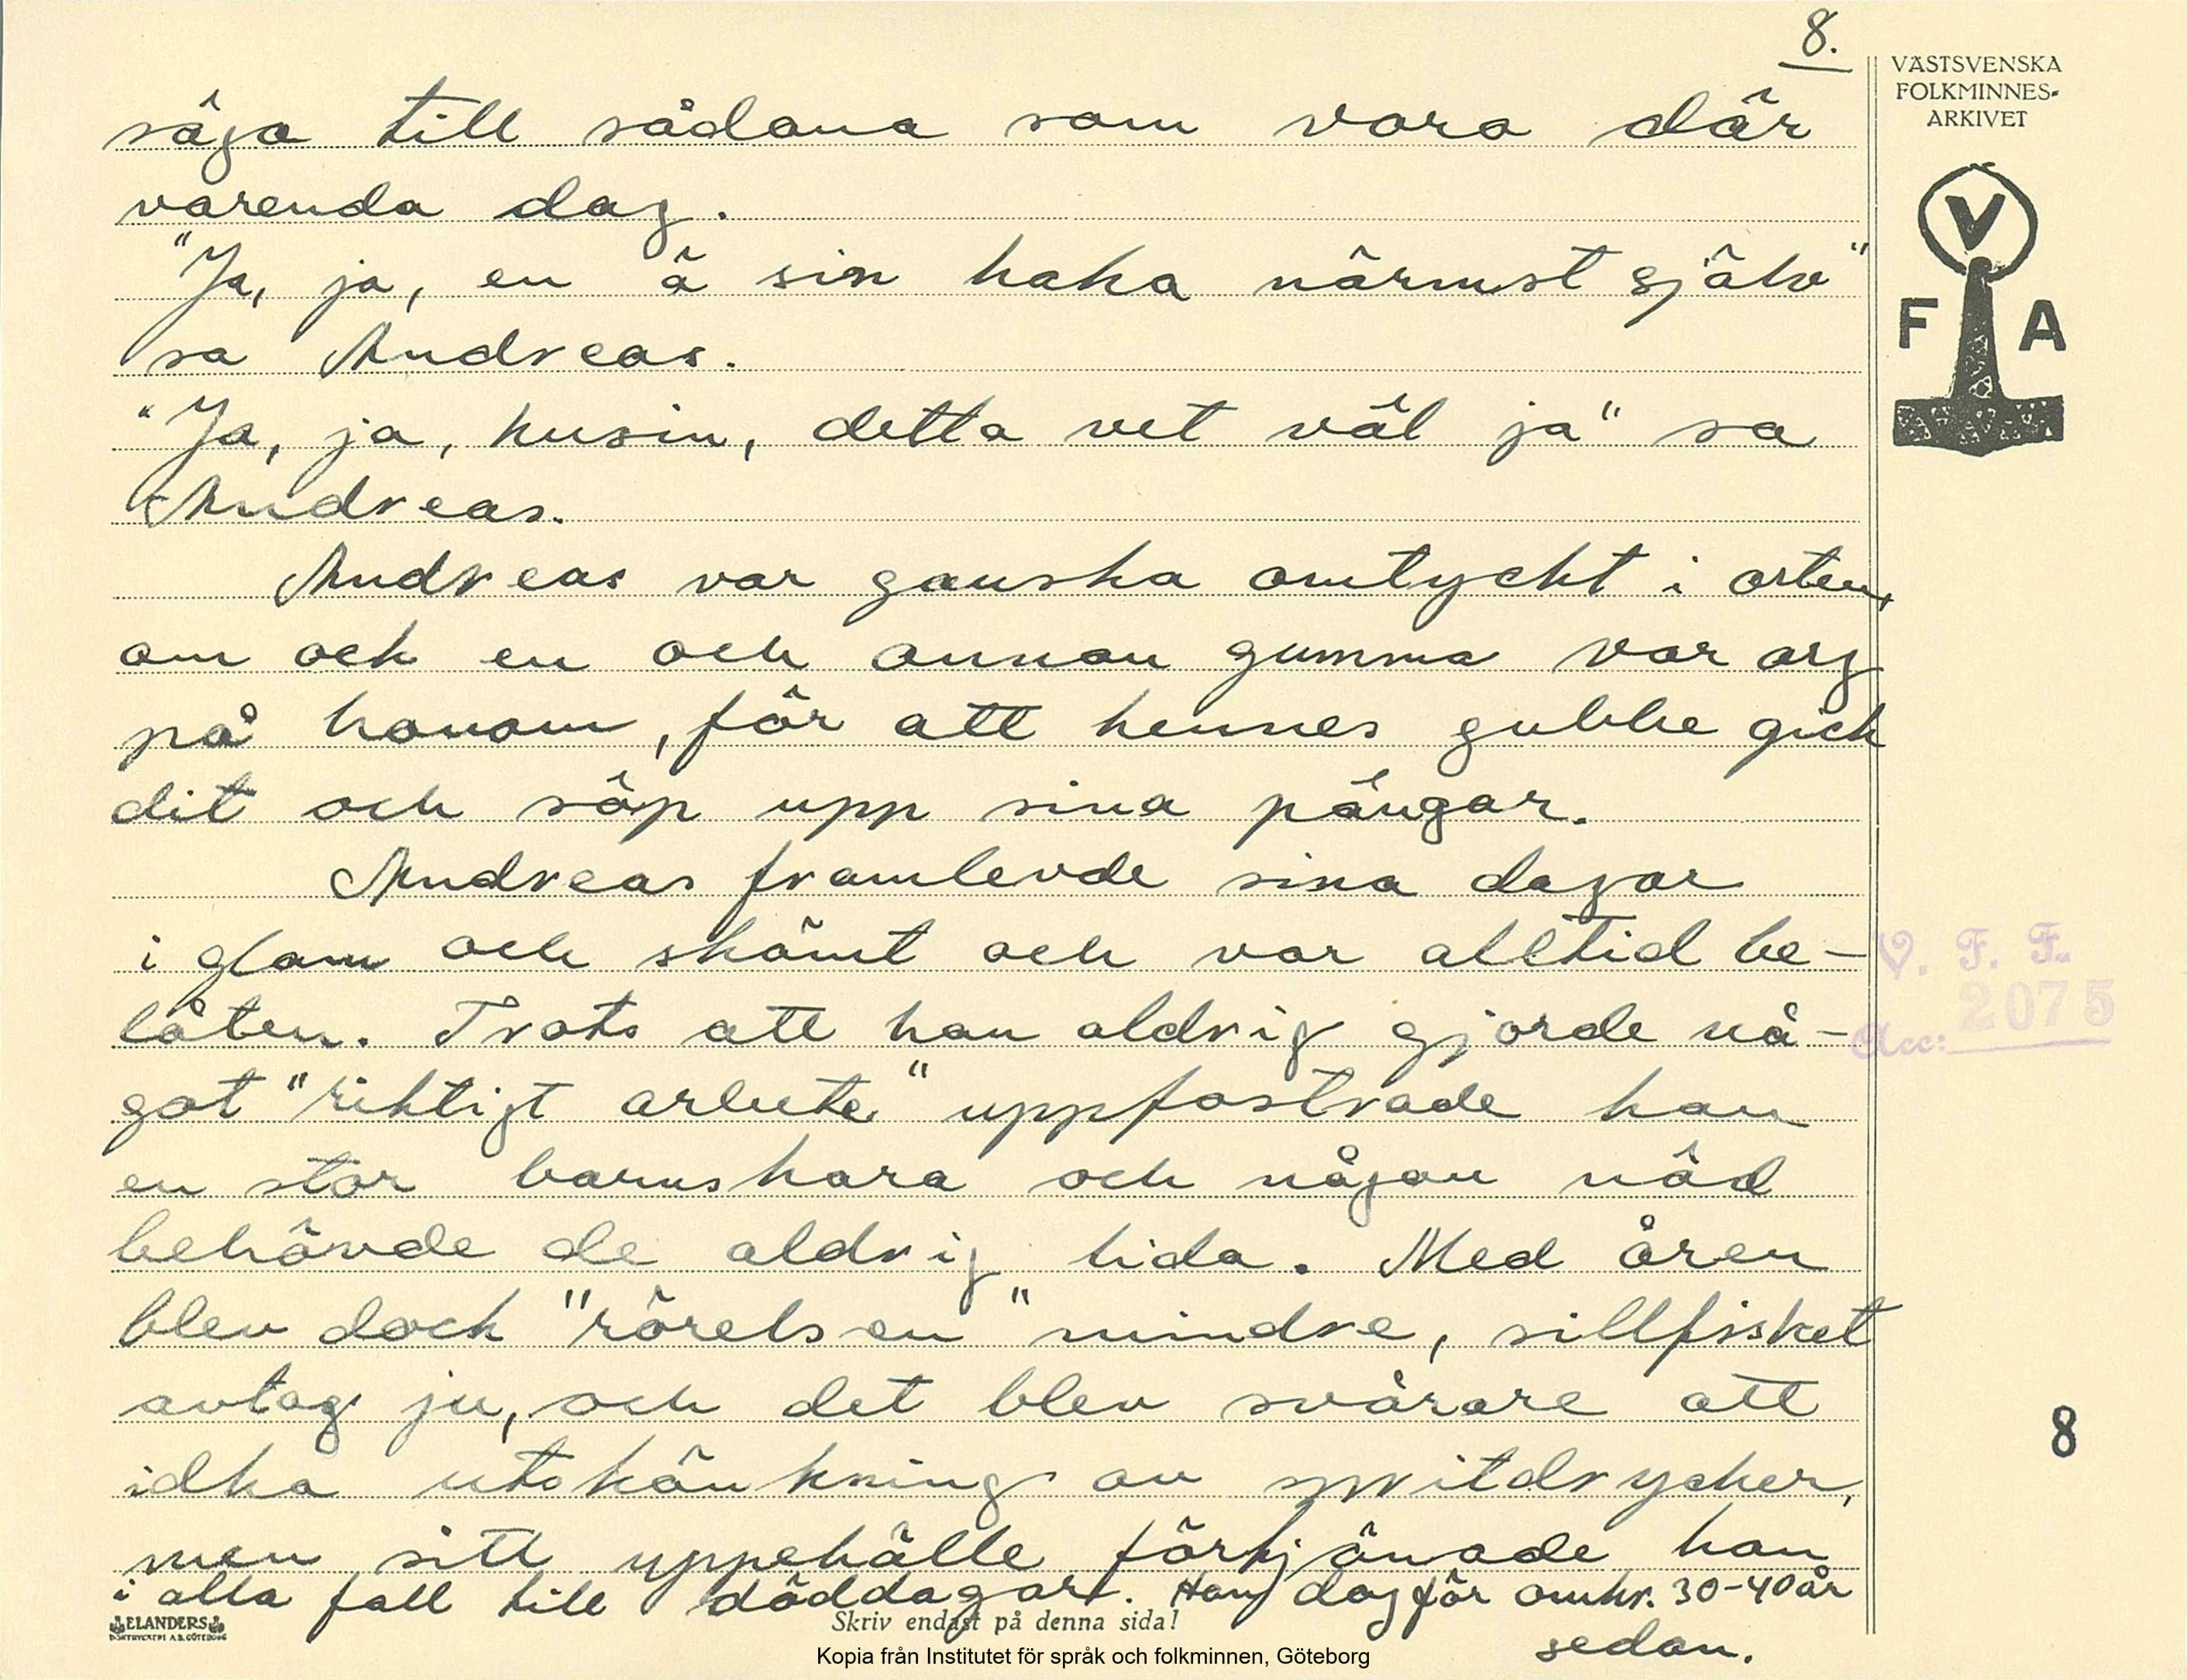 8.
VÄSTSVENSKA
FOLKMINNES-
ARKIVET
V
F A
säga till sådana som vora där
varenda dag.
"Ja, ja, en ä sin haka närmst själv"
sa Andreas.
"Ja, ja, kusin, detta vet väl ja" sa
Andreas.
Andreas var ganska omtyckt i orten,
om och en och annan gumma var arg
på honom, för att hennes gubbe gick
dit och söp upp sina pängar.
Andreas framlevde sina dagar
i glam och skämt och var alltid be-
låten. Trots att han aldrig gjorde nå-
got "riktigt arbete" uppfostrade han
en stor barnskara och någon nöd
behövde de aldrig lida. Med åren
blev dock "rörelsen" mindre, sillfisket
avtog ju, och det blev svårare att
idka utskänkning av spritdrycker,
men sitt uppehälle förtjänade han
i alla fall till döddagar. Han dog för omkr. 30-40 år
sedan.
V. F. F.
Acc: 2075
8
ELANDERS
BOKTRYCKERI A.B. GÖTEBORG
Skriv endast på denna sida!
Kopia från Institutet för språk och folkminnen, Göteborg